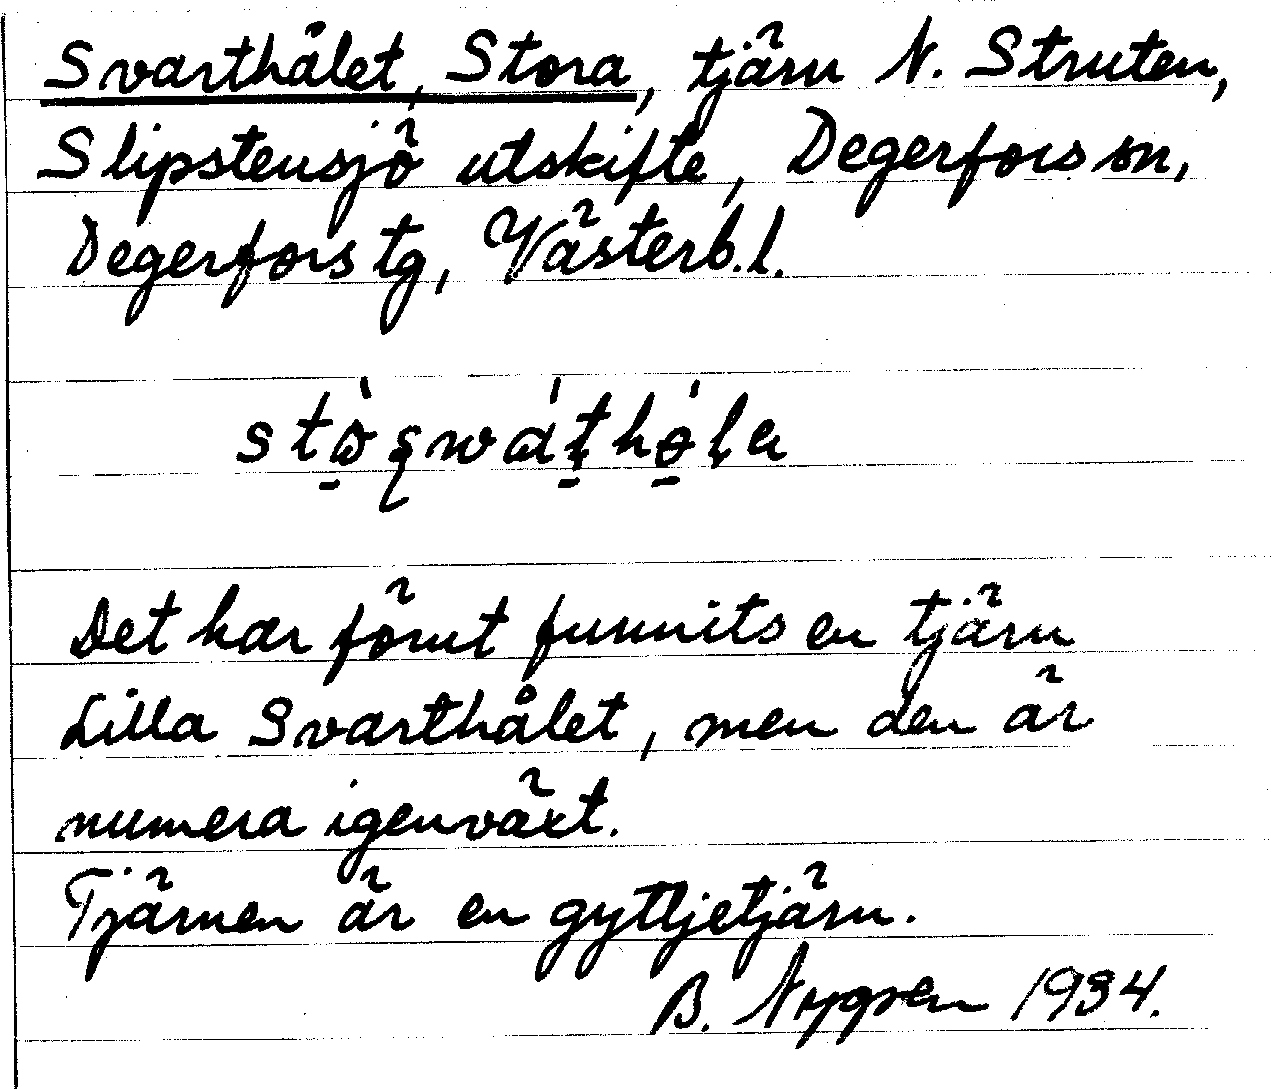 Svarthålet, Stora, tjärn N. Struten,
Slipstensjö utskifte, Degerfors sn,
Degerfors tg, Västerb.l.
Det har förut funnits en tjärn
Lilla Svarthålet, men den är
numera igenväxt.
Tjärnen är en gyttjetjärn.
B. Nygren 1934.